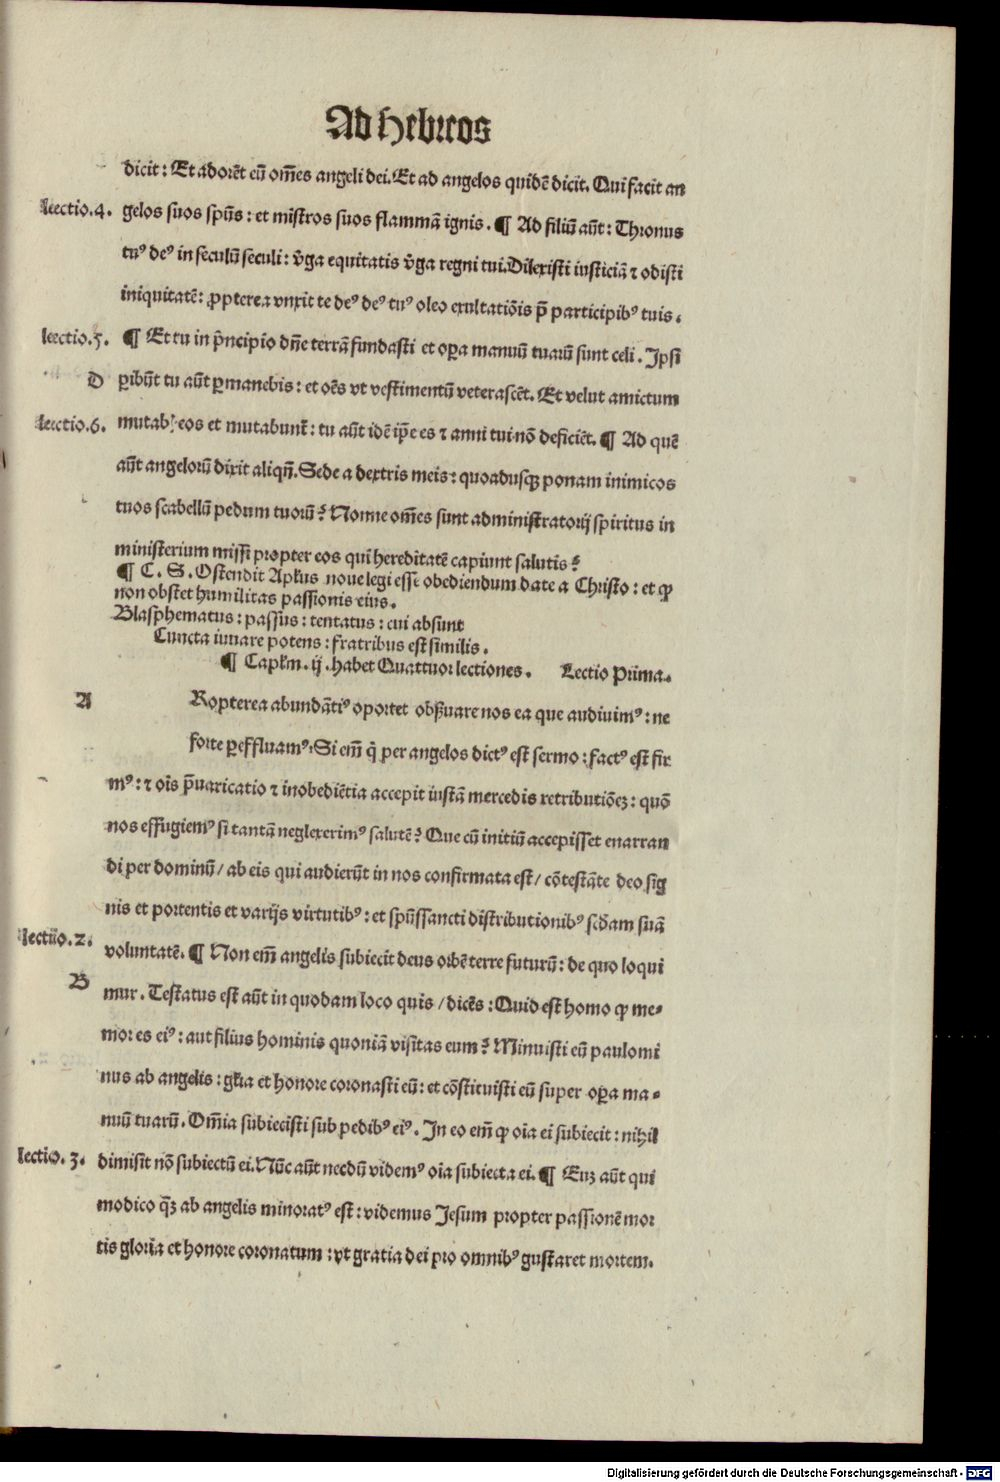 Ad Hebreos
dicit: Et adorēt eū om̄es angeli dei. Et ad angelos quidē dicit. Qui facit an
lectio.4. gelos suos spūs: et mīstros suos flammā ignis. ¶ Ad filiū aūt: Thronus
tuꝰ deꝰ in seculū seculi: v̄ga equitatis v̄ga regni tui. Dilexisti iusticiā ⁊ odisti
iniquitatē: ꝓpterea vnxit te deꝰ deꝰ tuꝰ oleo exultatiōis p̄ participibꝰ tuis.
lectio.5. ¶ Et tu in p̄ncipio dn̄e terrā fundasti et oꝑa manuū tuarū sunt celi. Ipsi
D ꝑibūt tu aūt ꝑmanebis: et oēs vt vestimentū veterascēt. Et velut amictum
lectio.6. mutab̵ eos et mutabunt̄: tu aūt idē ip̄e es ⁊ anni tui nō deficiēt. ¶ Ad quē
aūt angelorū dixit aliqn̄. Sede a dextris meis: quoadusqꝫ ponam inimicos
tuos scabellū pedum tuorū? Nonne om̄es sunt administratorij spiritus in
ministerium missi propter eos qui hereditatē capiunt salutis?
¶ C. S. Ostendit Apl̄us noue legi esse obediendum date a Christo: et ꝙ
non obstet humilitas passionis eius.
Blasphematus: passus: tentatus: cui absunt
Cuncta iuuare potens: fratribus est similis.
¶ Capl̄m. ij. habet Quattuor lectiones. Lectio Prima.
A Ropterea abundātiꝰ oportet obꝼuare nos ea que audiuimꝰ: ne
forte ꝑeffluamꝰ. Si em̄ q̇ per angelos dictꝰ est sermo: factꝰ est fir
mꝰ: ⁊ oīs p̄uaricatio ⁊ inobediētia accepit iustā mercedis retributiōeꝫ: quō
nos effugiemꝰ si tantā neglexerimꝰ salutē? Que cū initiū accepisset enarran
di per dominū / ab eis qui audierūt in nos confirmata est / cōtestāte deo sig
nis et portentis et varijs virtutibꝰ: et spūssancti distributionibꝰ scd̄am suā
lectio.2. voluntatē. ¶ Non em̄ angelis subiecit deus orbē terre futurū: de quo loqui
B mur. Testatus est aūt in quodam loco quis / dicēs: Quid est homo ꝙ me⸗
mor es eiꝰ: aut filius hominis quoniā visitas eum? Minuisti eū paulomi
nus ab angelis: gl̄ia et honore coronasti eū: et cōstituisti eū super oꝑa ma⸗
nuū tuarū. Om̄ia subiecisti sub pedibꝰ eiꝰ. In eo em̄ ꝙ oīa ei subiecit: nihil
lectio.3. dimisit nō subiectū ei. Nūc aūt necdū videmꝰ oīa subiecta ei. ¶ Euꝫ aūt qui
modico q̄ꝫ ab angelis minoratꝰ est: videmus Jesum propter passionē mor
tis gloria et honore coronatum: vt gratia dei pro omnibꝰ gustaret mortem.
Digitalisierung gefördert durch die Deutsche Forschungsgemeinschaft - DFG